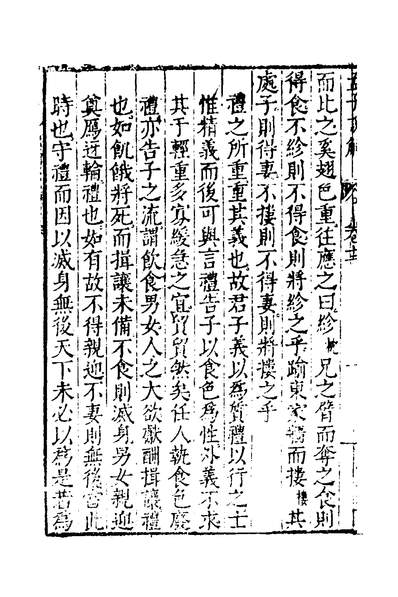 而比之奚翅色重往應之曰紾枕兄之臂而奪之食則
得食不紾則不得食則將紾之乎踰東家牆而摟樓其
處子則得妻不摟則不得妻則將摟之乎
禮之所重重其義也故君子義以為質禮以行之士
惟精義而後可與言禮告子以食色為性外義不求
其于輕重多寡緩急之宜貿貿然矣任人執食色廢
禮亦告子之流謂飲食男女人之大欲獻酬揖讓禮
也如飢餓將死而揖讓未備不食則滅身男女親迎
奠鴈迓輪禮也如有故不得親迎不妻則無後當此
時也守禮而因以滅身無後天下未必以為是若為